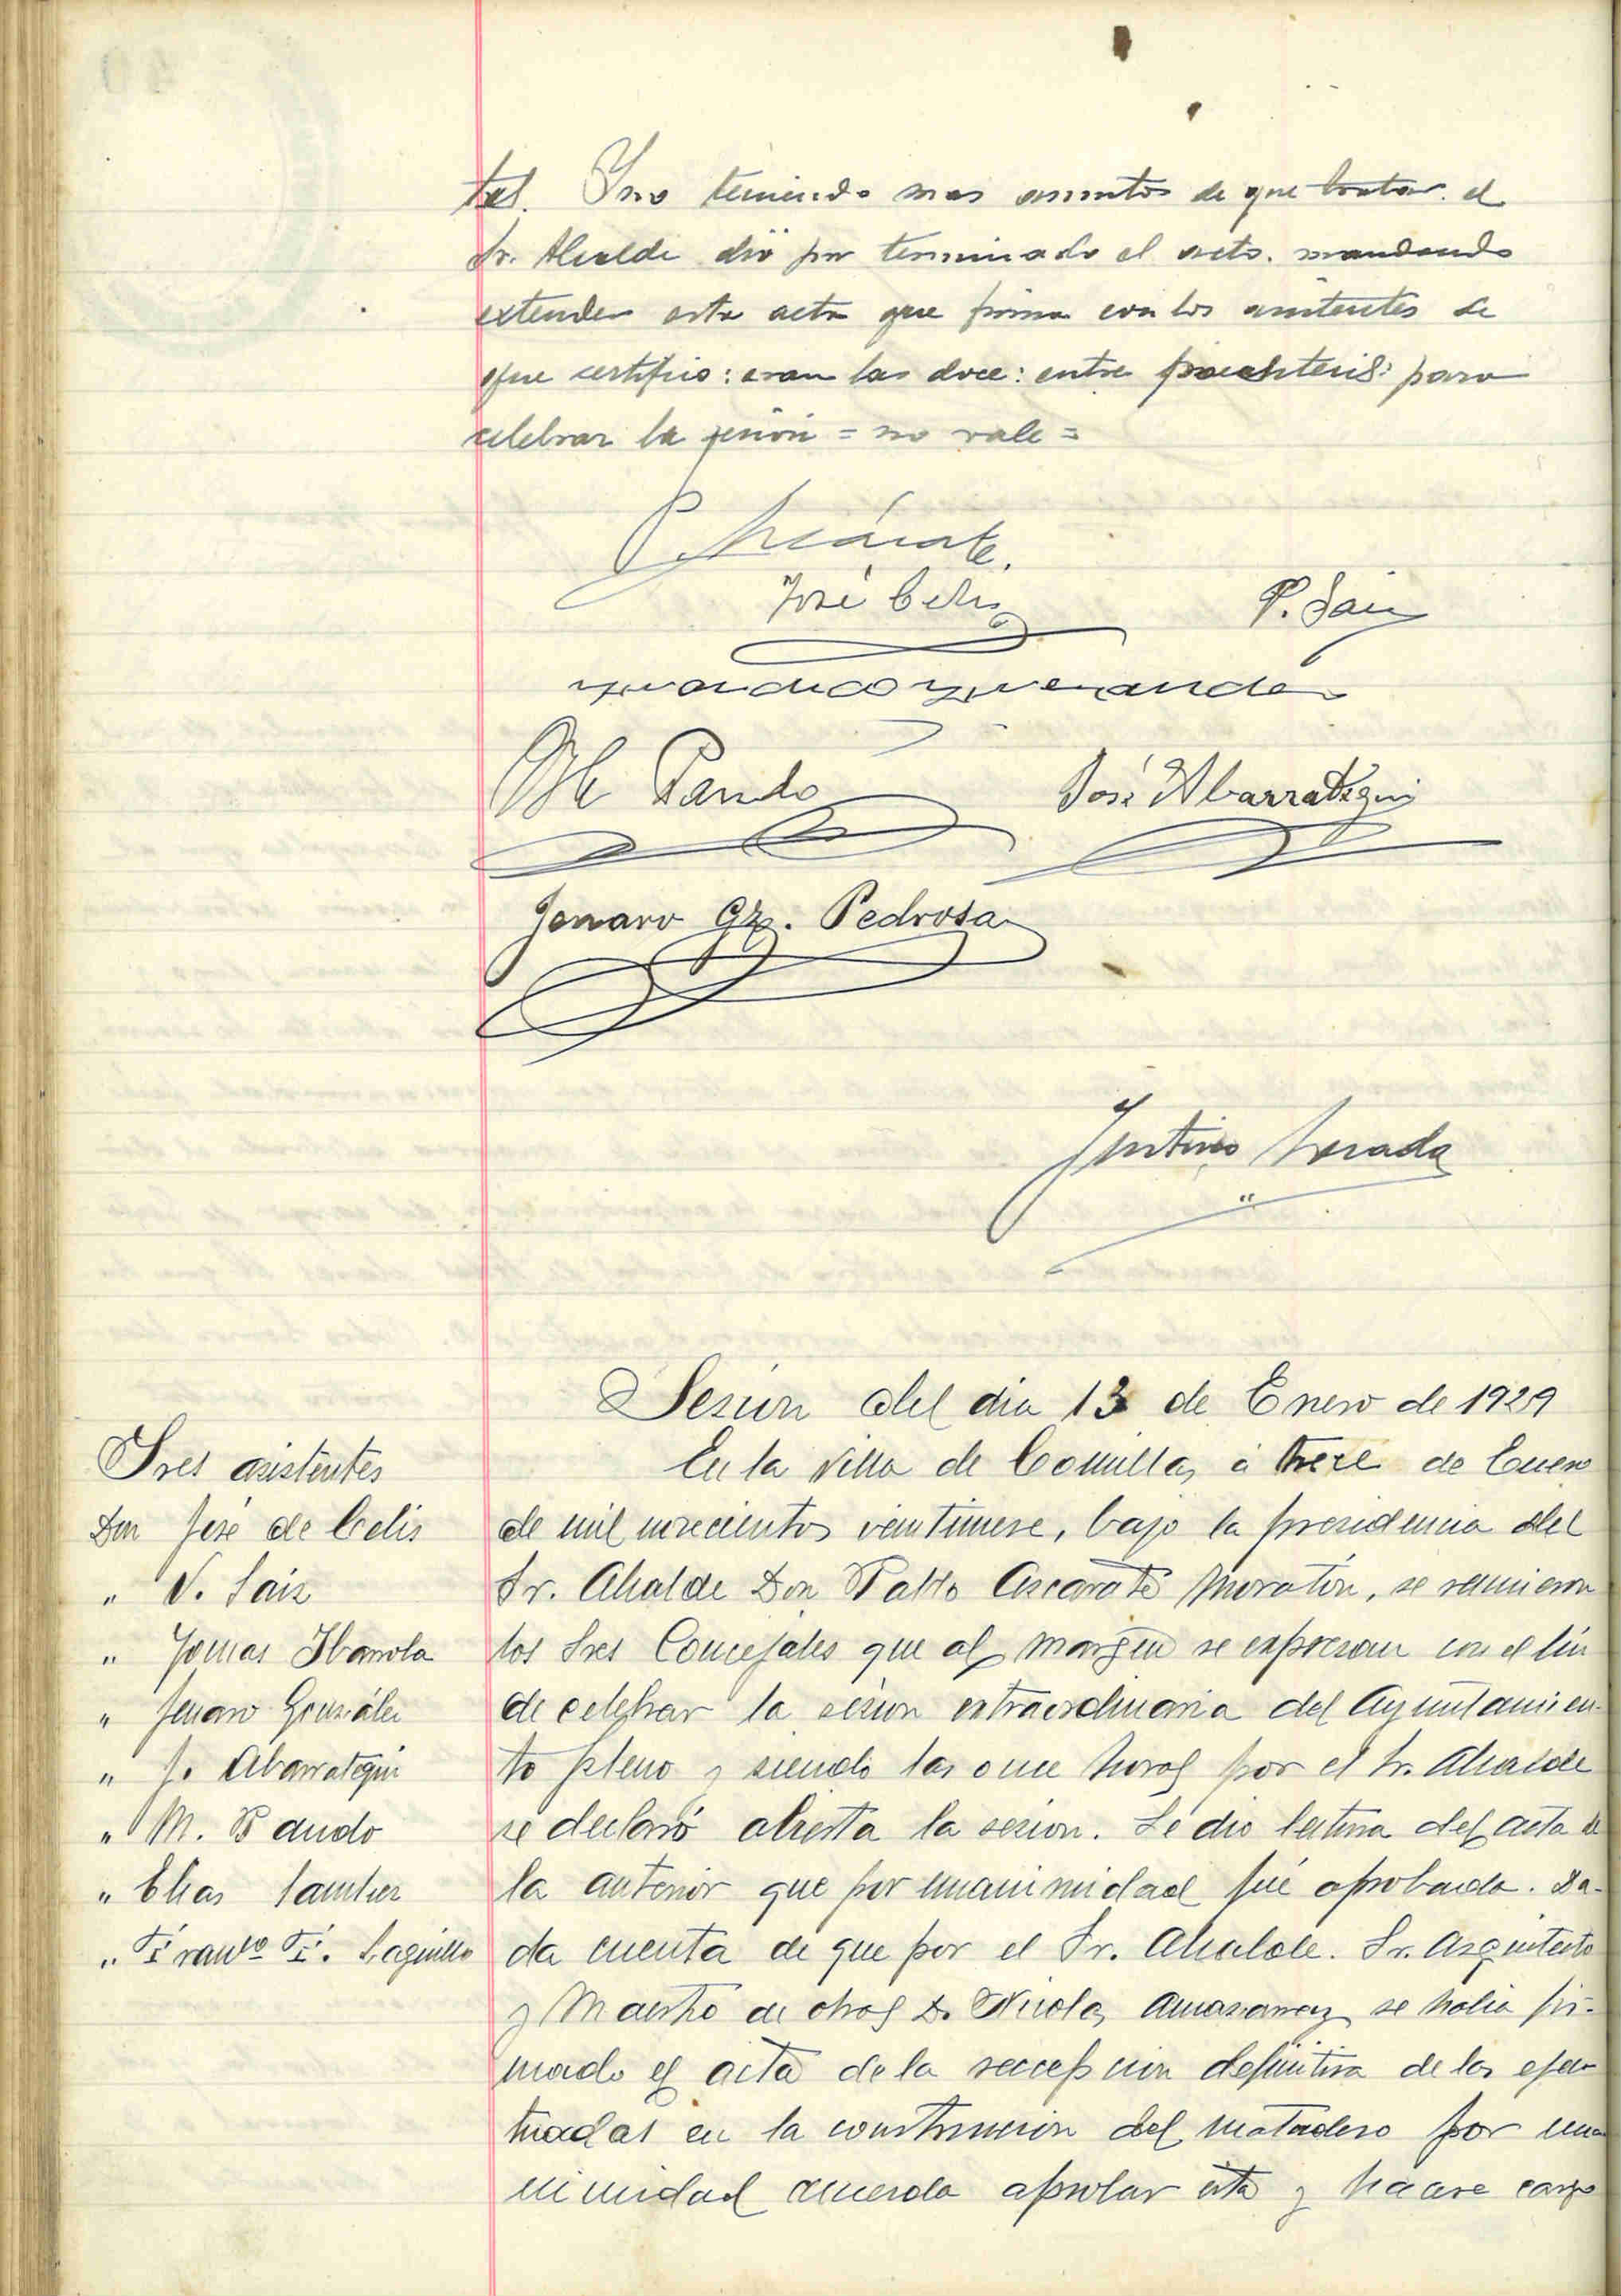 tal. Y no teniendo mas asuntos de que tratar. el
Sr. Alcalde dió por terminado el acto. mandando
extender esta acta que firma con los asistentes de
que certifico: eran las doce: entre parentesis: para
celebrar la sesión = no vale =
P. Azcárate.
José Celis
P. Saiz
M. Pando
José Abarrategui
Jenaro Gz. Pedrosa
Justino Losada
Sesión del dia 13 de Enero de 1929
Sres asistentes
Don José de Celis
" V. Saiz
" Tomas Ibarrola
" Jenaro González
" J. Abarrategui
" M. Pando
" Elias Santier
" Franco F. Laguillo
En la villa de Comillas, á trece de Enero
de mil novecientos veintinueve, bajo la presidencia del
Sr. Alcalde Don Pablo Azcarate Moratón, se reunieron
los Sres Concejales que al margen se expresan con el fin
de celebrar la sesion extraordinaria del Ayuntamien-
to pleno y siendo las once horas por el Sr. Alcalde
se declaró abierta la sesion. Se dio lectura del acta de
la anterior que por unanimidad fué aprobada. Da-
da cuenta de que por el Sr. Alcalde. Sr. Arquitecto
y Maestro de obras D. Nicolas se habia fir-
mado el acta de la recepcion definitiva de las ejecu-
tuadas en la construccion del matadero por una
nimidad acuerda aprobar esta y hacerse cargo